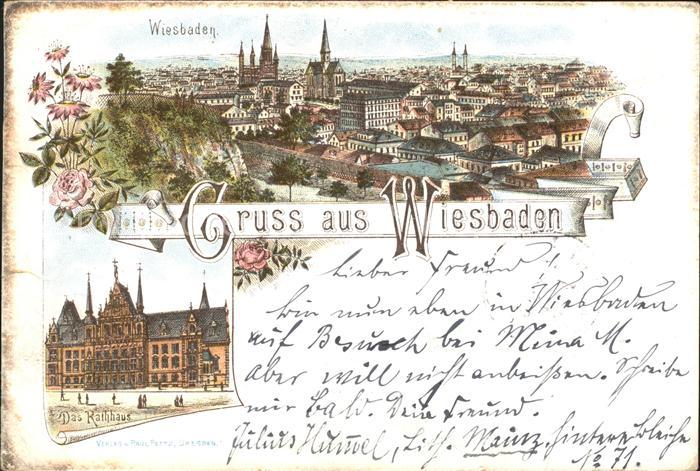 Wiesbaden.
Gruss aus Wiesbaden
Lieber Freund!
bin nun eben in Wiesbaden
auf Besuch bei Mina M.
aber will nicht anbeißen. Schreibe
mir bald. Dein Freund.
Julius Hummel, Lith. Mainz, hintere Bleiche
No. 71.
Das Rathhaus